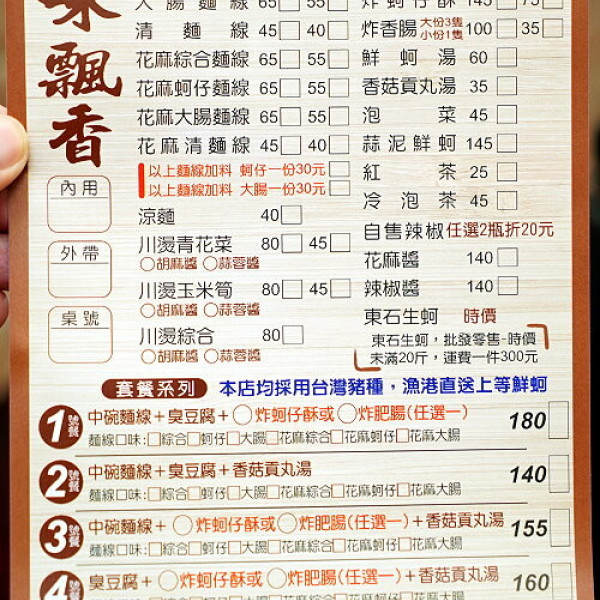 味飄香
內用
外帶
桌號
大腸麵線 65 55
清麵線 45 40
花麻綜合麵線 65 55
花麻蚵仔麵線 65 55
花麻大腸麵線 65 55
花麻清麵線 45 40
以上麵線加料 蚵仔一份30元
以上麵線加料 大腸一份30元
涼麵 40
川燙青花菜 80 45
胡麻醬 蒜蓉醬
川燙玉米筍 80 45
胡麻醬 蒜蓉醬
川燙綜合 80
胡麻醬 蒜蓉醬
炸蚵仔酥 145 75
炸香腸 大份3隻 小份1隻 100 35
鮮蚵湯 60
香菇貢丸湯 35
泡菜 45
蒜泥鮮蚵 145
紅茶 25
冷泡茶 45
自售辣椒 任選2瓶折20元
花麻醬 140
辣椒醬 140
東石生蚵 時價
東石生蚵，批發零售-時價
未滿20斤，運費一件300元
套餐系列 本店均採用台灣豬種，漁港直送上等鮮蚵
1號餐 中碗麵線+臭豆腐+炸蚵仔酥或炸肥腸(任選一) 180
麵線口味:綜合蚵仔大腸花麻綜合花麻蚵仔花麻大腸
2號餐 中碗麵線+臭豆腐+香菇貢丸湯 140
麵線口味:綜合蚵仔大腸花麻綜合花麻蚵仔花麻大腸
3號餐 中碗麵線+炸蚵仔酥或炸肥腸(任選一)+香菇貢丸湯 155
麵線口味:綜合蚵仔大腸花麻綜合花麻蚵仔花麻大腸
4號餐 臭豆腐+炸蚵仔酥或炸肥腸(任選一)+香菇貢丸湯 160